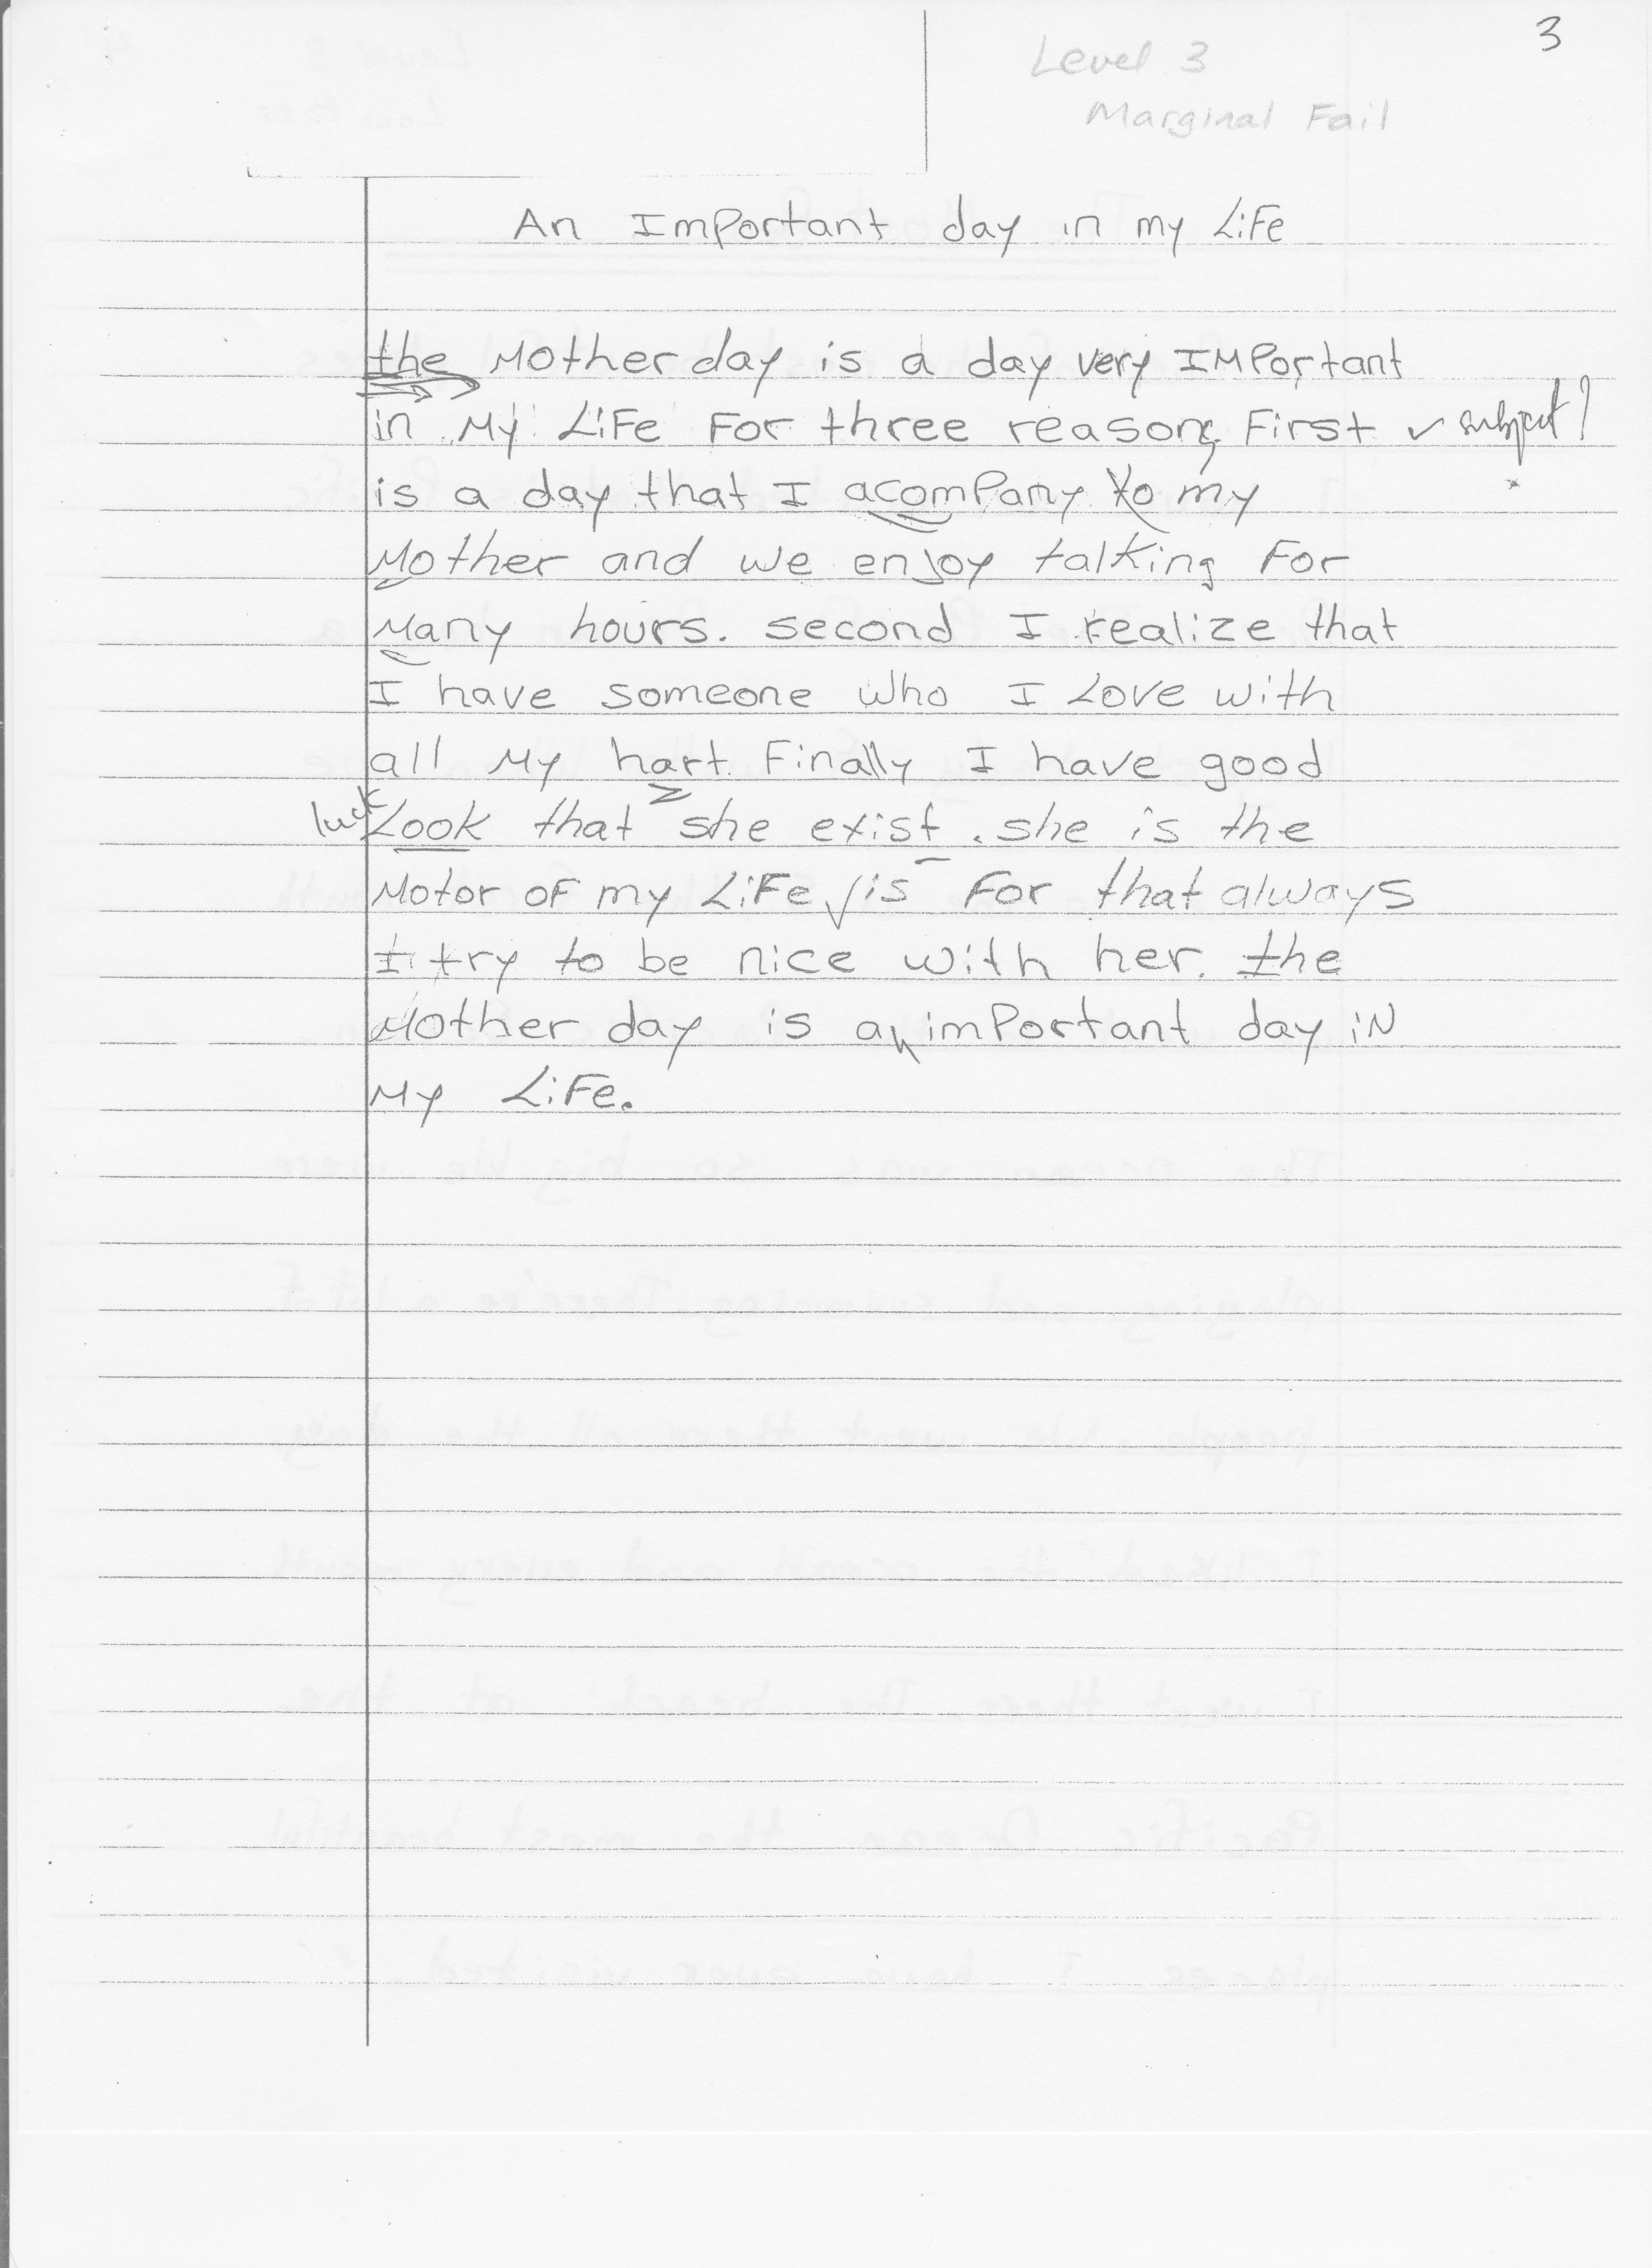 3
Level 3
Marginal Fail
An Important day in my Life
the Mother day is a day very IMPortant
in My Life For three reasons, First ✓ subject?
is a day that I acompany to my
Mother and we enjoy talking For
Many hours. second I realize that
I have someone who I Love with
all My hart. Finally I have good
luck
Look that she exist. she is the
Motor of my Life is For that always
I try to be nice with her. the
Mother day is an important day in
My Life.